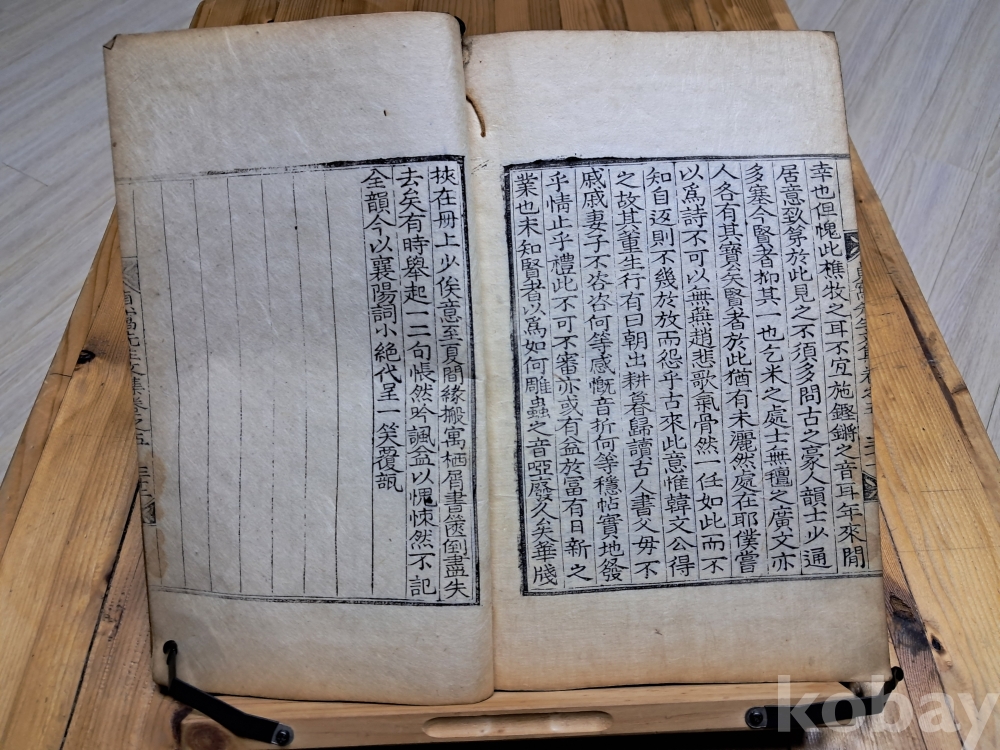 幸也但愧此樵牧之耳不宜施鏗鏘之音耳年來閒
居意致第於此見之不須多問古之豪人韻士少通
多塞今賢者抑其一也乞米之處士無氊之廣文亦
人各有其寶矣賢者於此猶有未灑然處在耶僕嘗
以爲詩不可以無燕趙悲歌氣骨然一任如此而不
知自返則不幾於放而怨乎古來此意惟韓文公得
之故其董生行有曰朝出耕暮歸讀古人書父母不
戚戚妻子不咨咨何等感慨音折何等穩帖實地發
乎情止乎禮此不可不審亦或有益於富有日新之
業也未知賢者以爲如何雕蟲之音啞廢久矣華牋
挾在冊上少俟意至夏間緣搬寓栖屑書篋倒盡失
去矣有時舉起一二句悵然吟諷益以愧悚然不記
全韻今以襄陽詞小絶代呈一笑覆瓿
先生文集卷之五
kobay